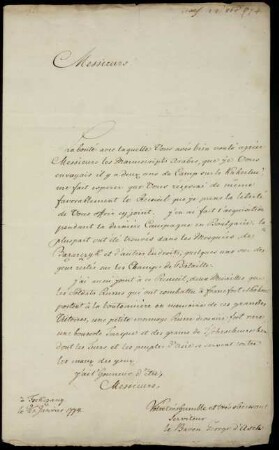 Messieurs
La bonté avec laquelle Vous avés bien voulû agréer
Messieurs les Manuscripts Arabes, que je Vous
envoyais il y a deux ans du Camp sur le
me fait esperer que Vous recevrés de même
favorablement le Recueil que je prens la liberté
de Vous offrir cyjoint. j'en ai fait l'acquisition
pendant la derniere Campagne en Boulgarie. la
pluspart ont été trouvés dans les Mosquées de
Bazarczyk et d'autres Endroits, quelques uns
pour restés sur les Champs de Bataille.
J'ai encor joint à ce Recueil, deux Medailles
les Soldats Russes qui ont combattu à
portent à la boutonniere en memoire de ces grandes
Victoires, une petite monnaye Turque
une boussole Turque et des grains de
dont les Turcs et les peuples d'Asie se servent contre
les maux des yeux.
J'ai l'honneur d'Etre
Messieurs
à
le Janvier 1775.
Votre très humble et très obeissant
Serviteur
le Baron d'Asch